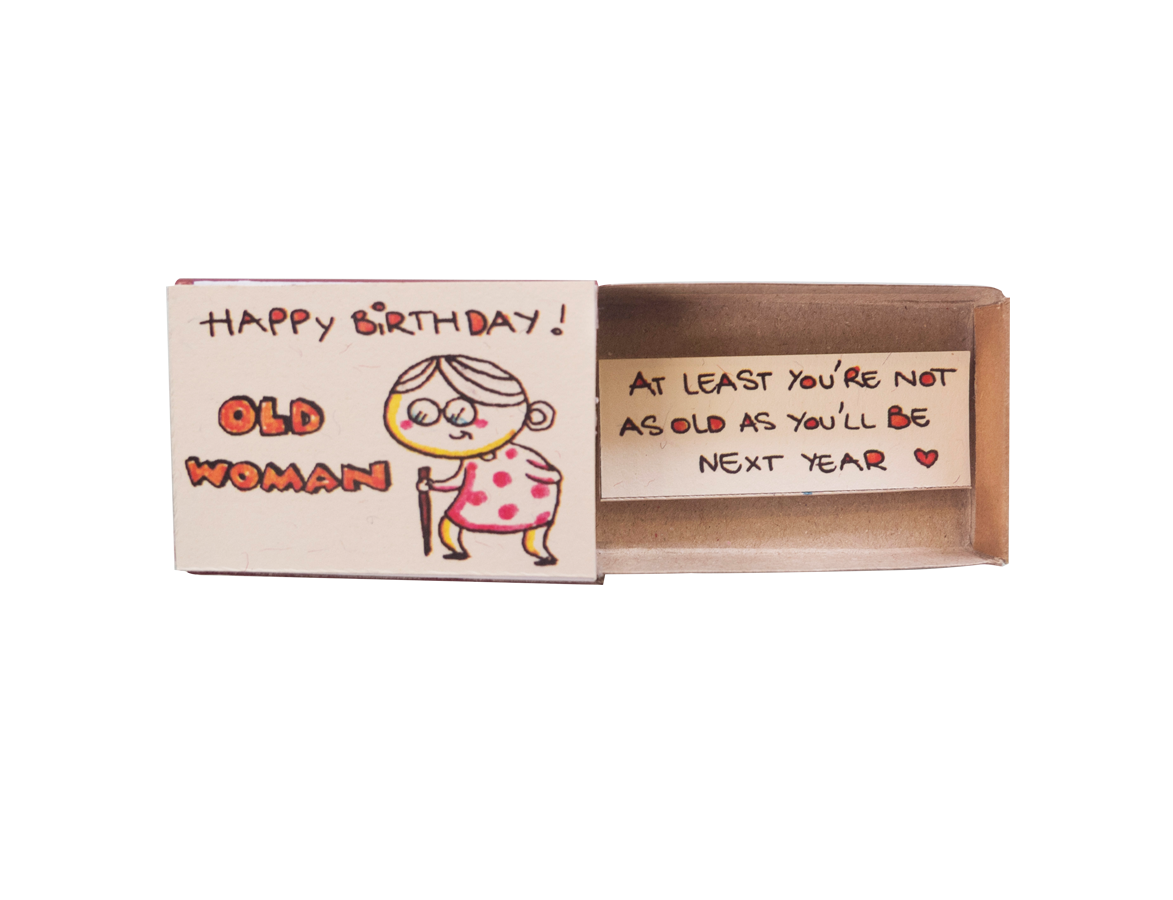 HAPPY BIRTHDAY!
OLD
WOMAN
AT LEAST YOU'RE NOT
AS OLD AS YOU'LL BE
NEXT YEAR ♥